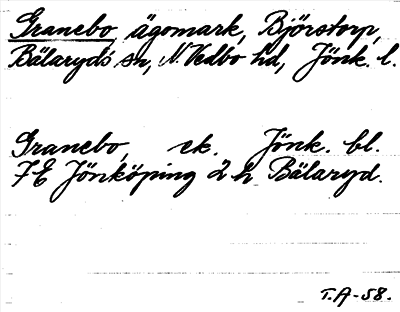 Granebo ägomark, Björstorp,
Bälaryds sn, N. Vedbo hd, Jönk. l.
Granebo, ek. Jönk. bl.
7E Jönköping 2 h Bälaryd.
T.A-58.